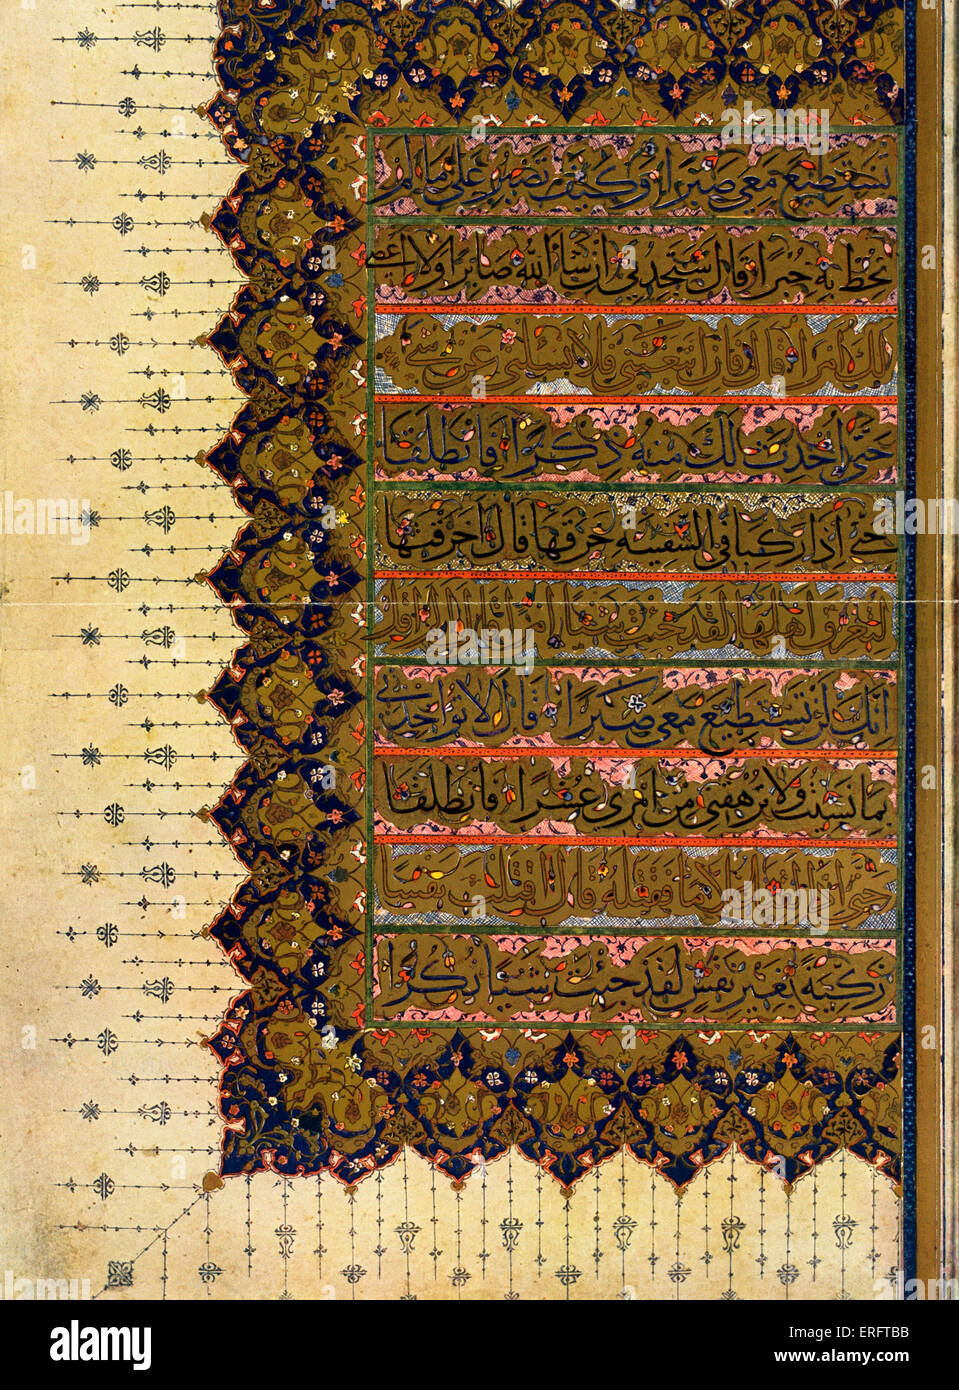 تستطيع معي صبرا وكيف تصبر على ما لم
تحط به خبرا قال ستجدني ان شاء الله صابرا ولا اعصي
لك امرا قال فان اتبعتني فلا تسئلني عن شيء
حتى احدث لك منه ذكرا فانطلقا
حتى اذا ركبا في السفينة خرقها قال اخرقتها
لتغرق اهلها لقد جئت شيئا امرا قال الم اقل
انك لن تستطيع معي صبرا قال لا تؤاخذني
بما نسيت ولا ترهقني من امري عسرا فانطلقا
حتى اذا لقيا غلاما فقتله قال اقتلت نفسا
زكية بغير نفس لقد جئت شيئا نكرا
alamy
Image ID: ERFTBB
www.alamy.com